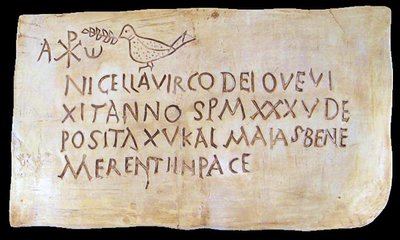 Α☧ω
NICELLAVIRCODEIOVEVI
XITANNOSPMXXXVDE
POSITAXVKALMAIASBENE
MERENTIINPACE